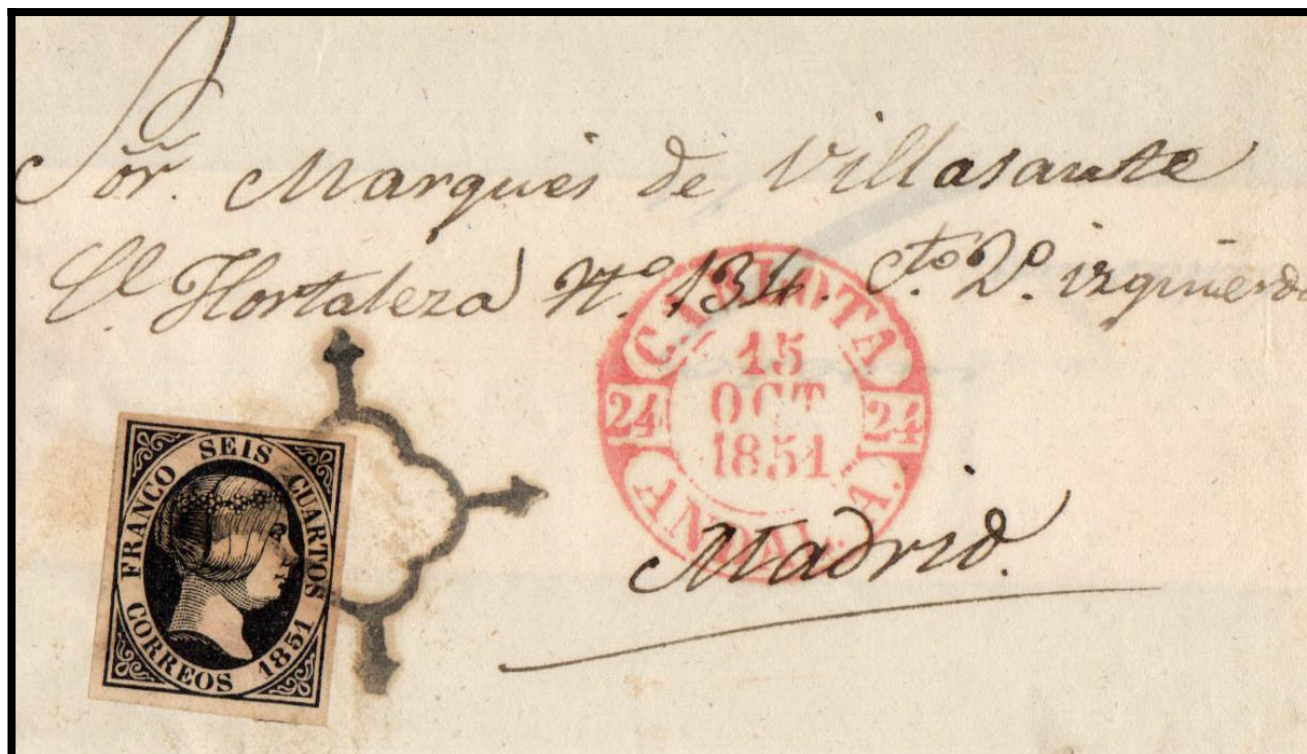 Sor. Marques de Villasante
Cl. Hortaleza Nº 134. Cto. 2º. izquierda
CARLOTA
15
OCT
1851
24 24
ANDAL.A.
Madrid.
FRANCO SEIS CUARTOS
CORREOS 1851